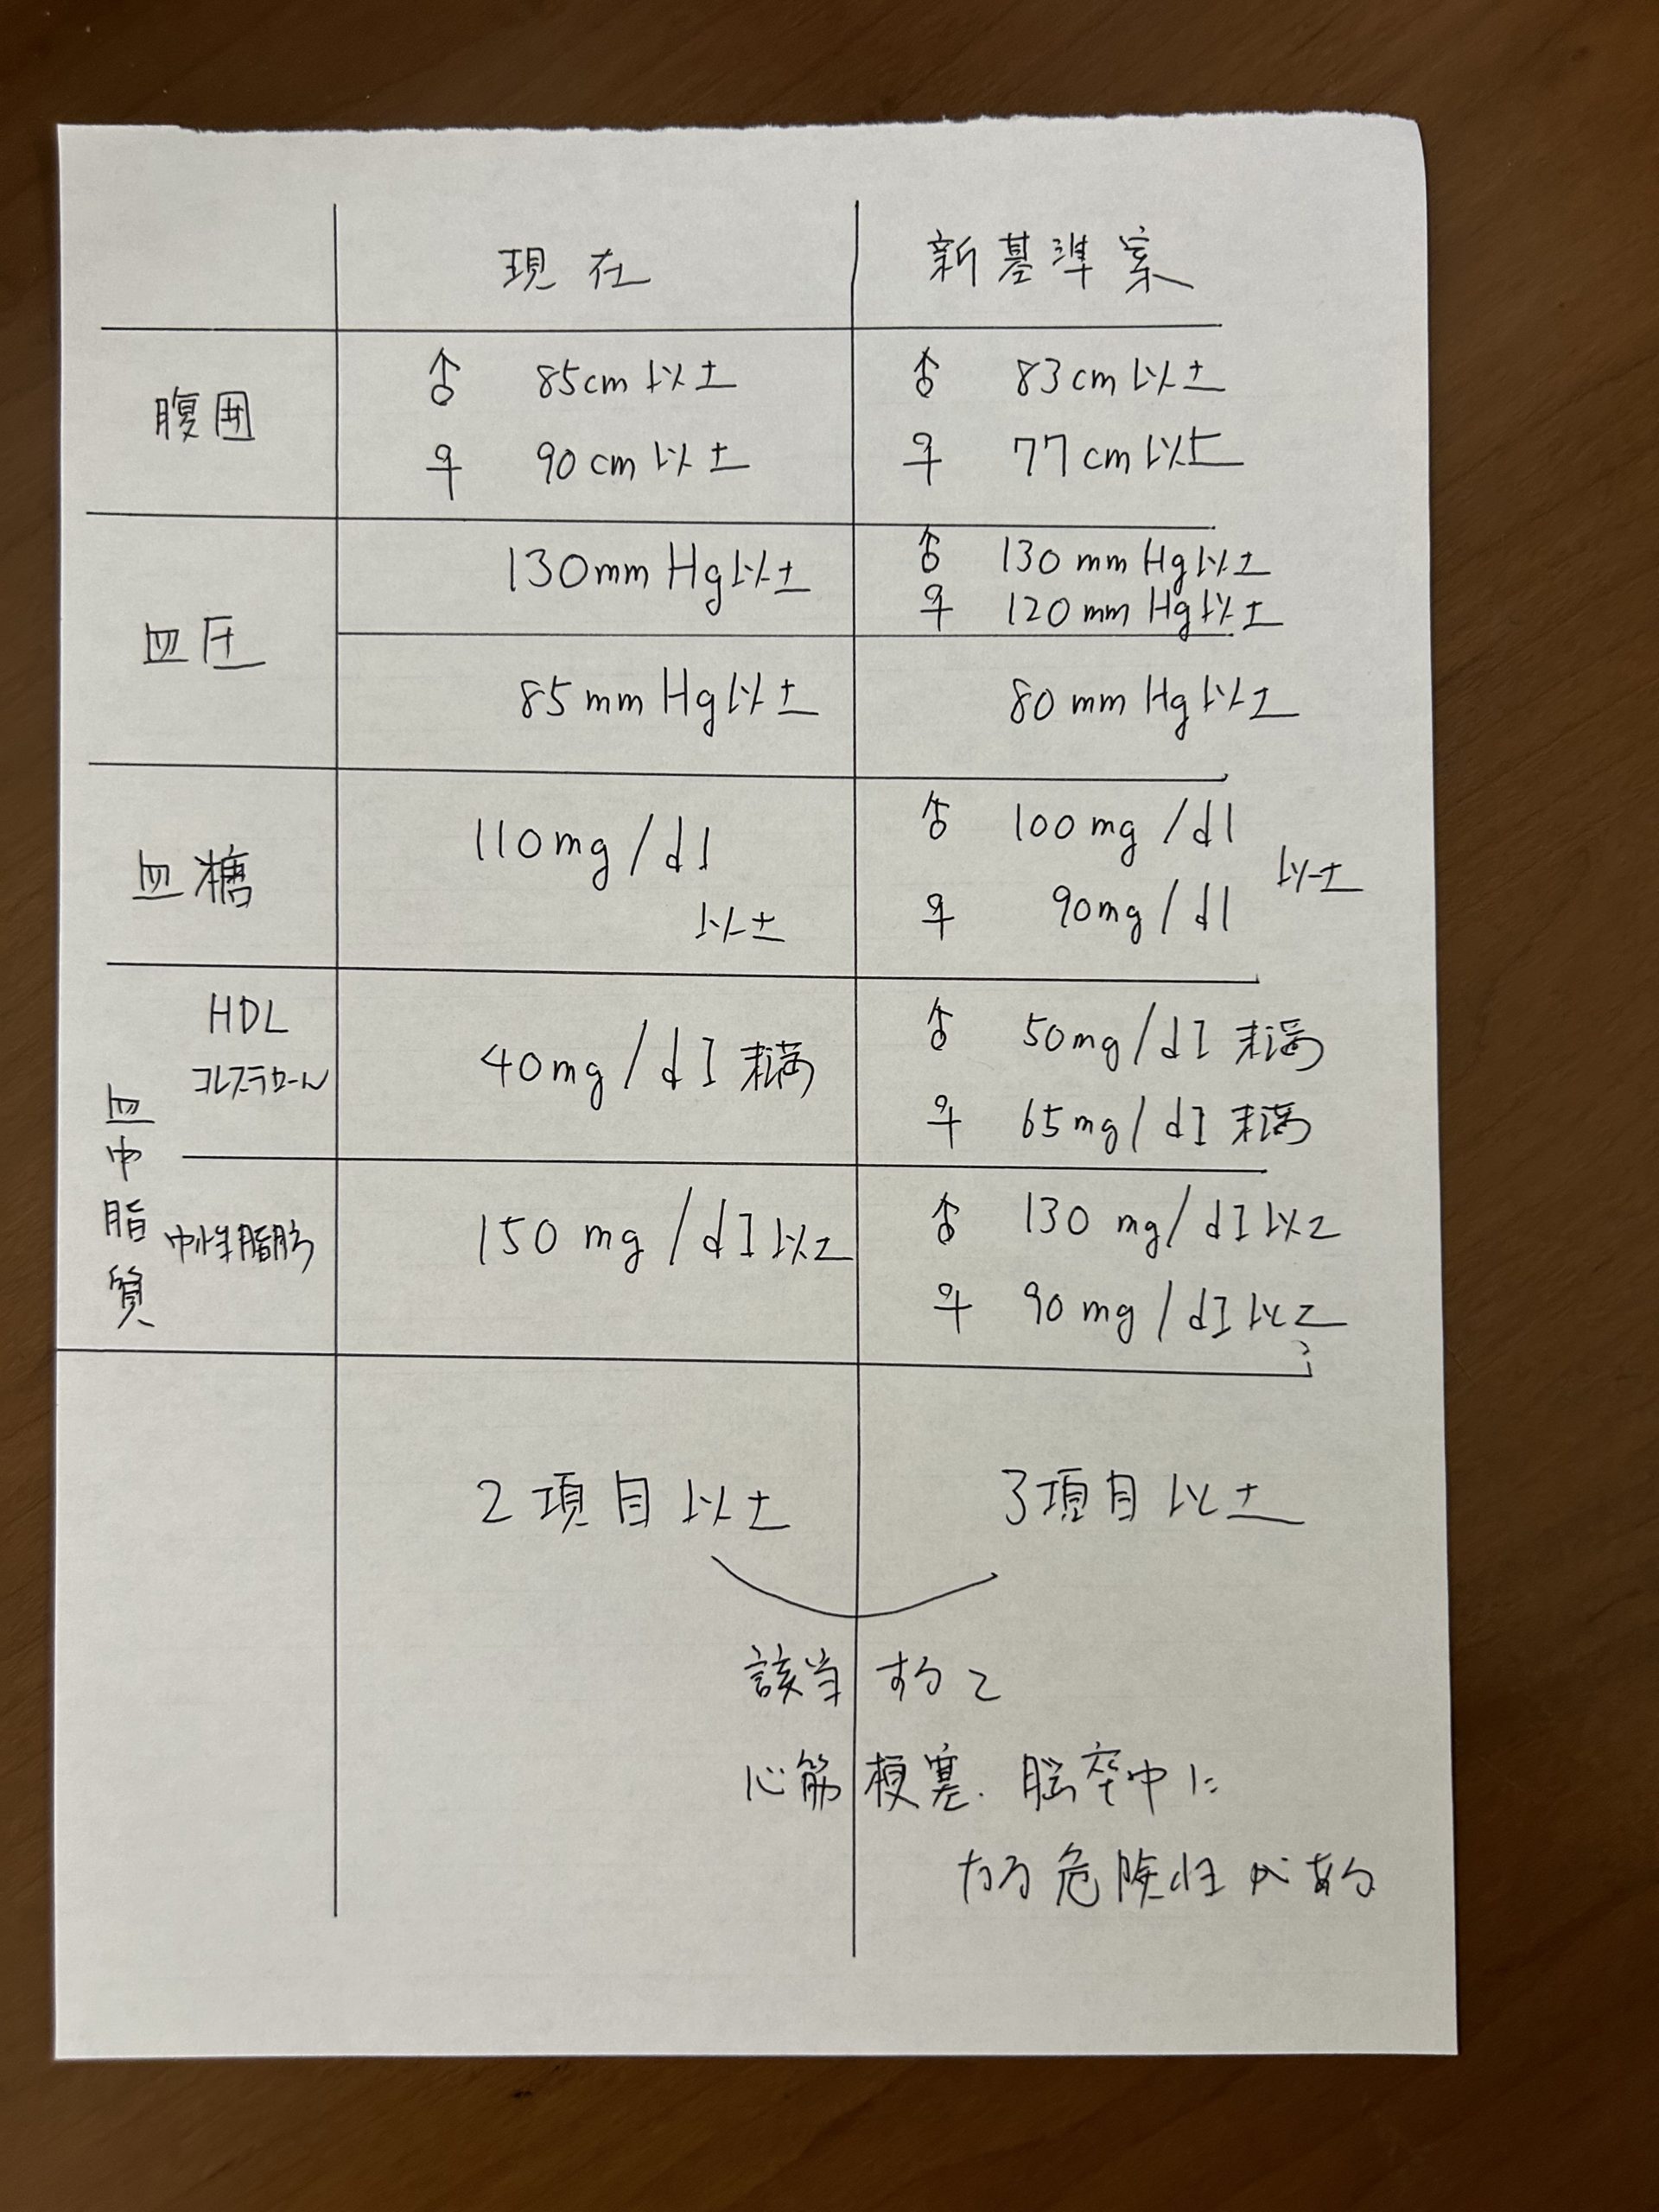 現在 新基準案
腹囲 ♂ 85cm以上 ♂ 83cm以上
♀ 90cm以上 ♀ 77cm以上
血圧 130mmHg以上 ♂ 130mmHg以上
♀ 120mmHg以上
85mmHg以上 80mmHg以上
血糖 110mg/dl ♂ 100mg/dl
以上 ♀ 90mg/dl 以上
血中脂質
HDL
コレステロール 40mg/dl未満 ♂ 50mg/dl未満
♀ 65mg/dl未満
中性脂肪 150mg/dl以上 ♂ 130mg/dl以上
♀ 90mg/dl以上
2項目以上 3項目以上
該当すると
心筋梗塞.脳卒中に
なる危険性がある